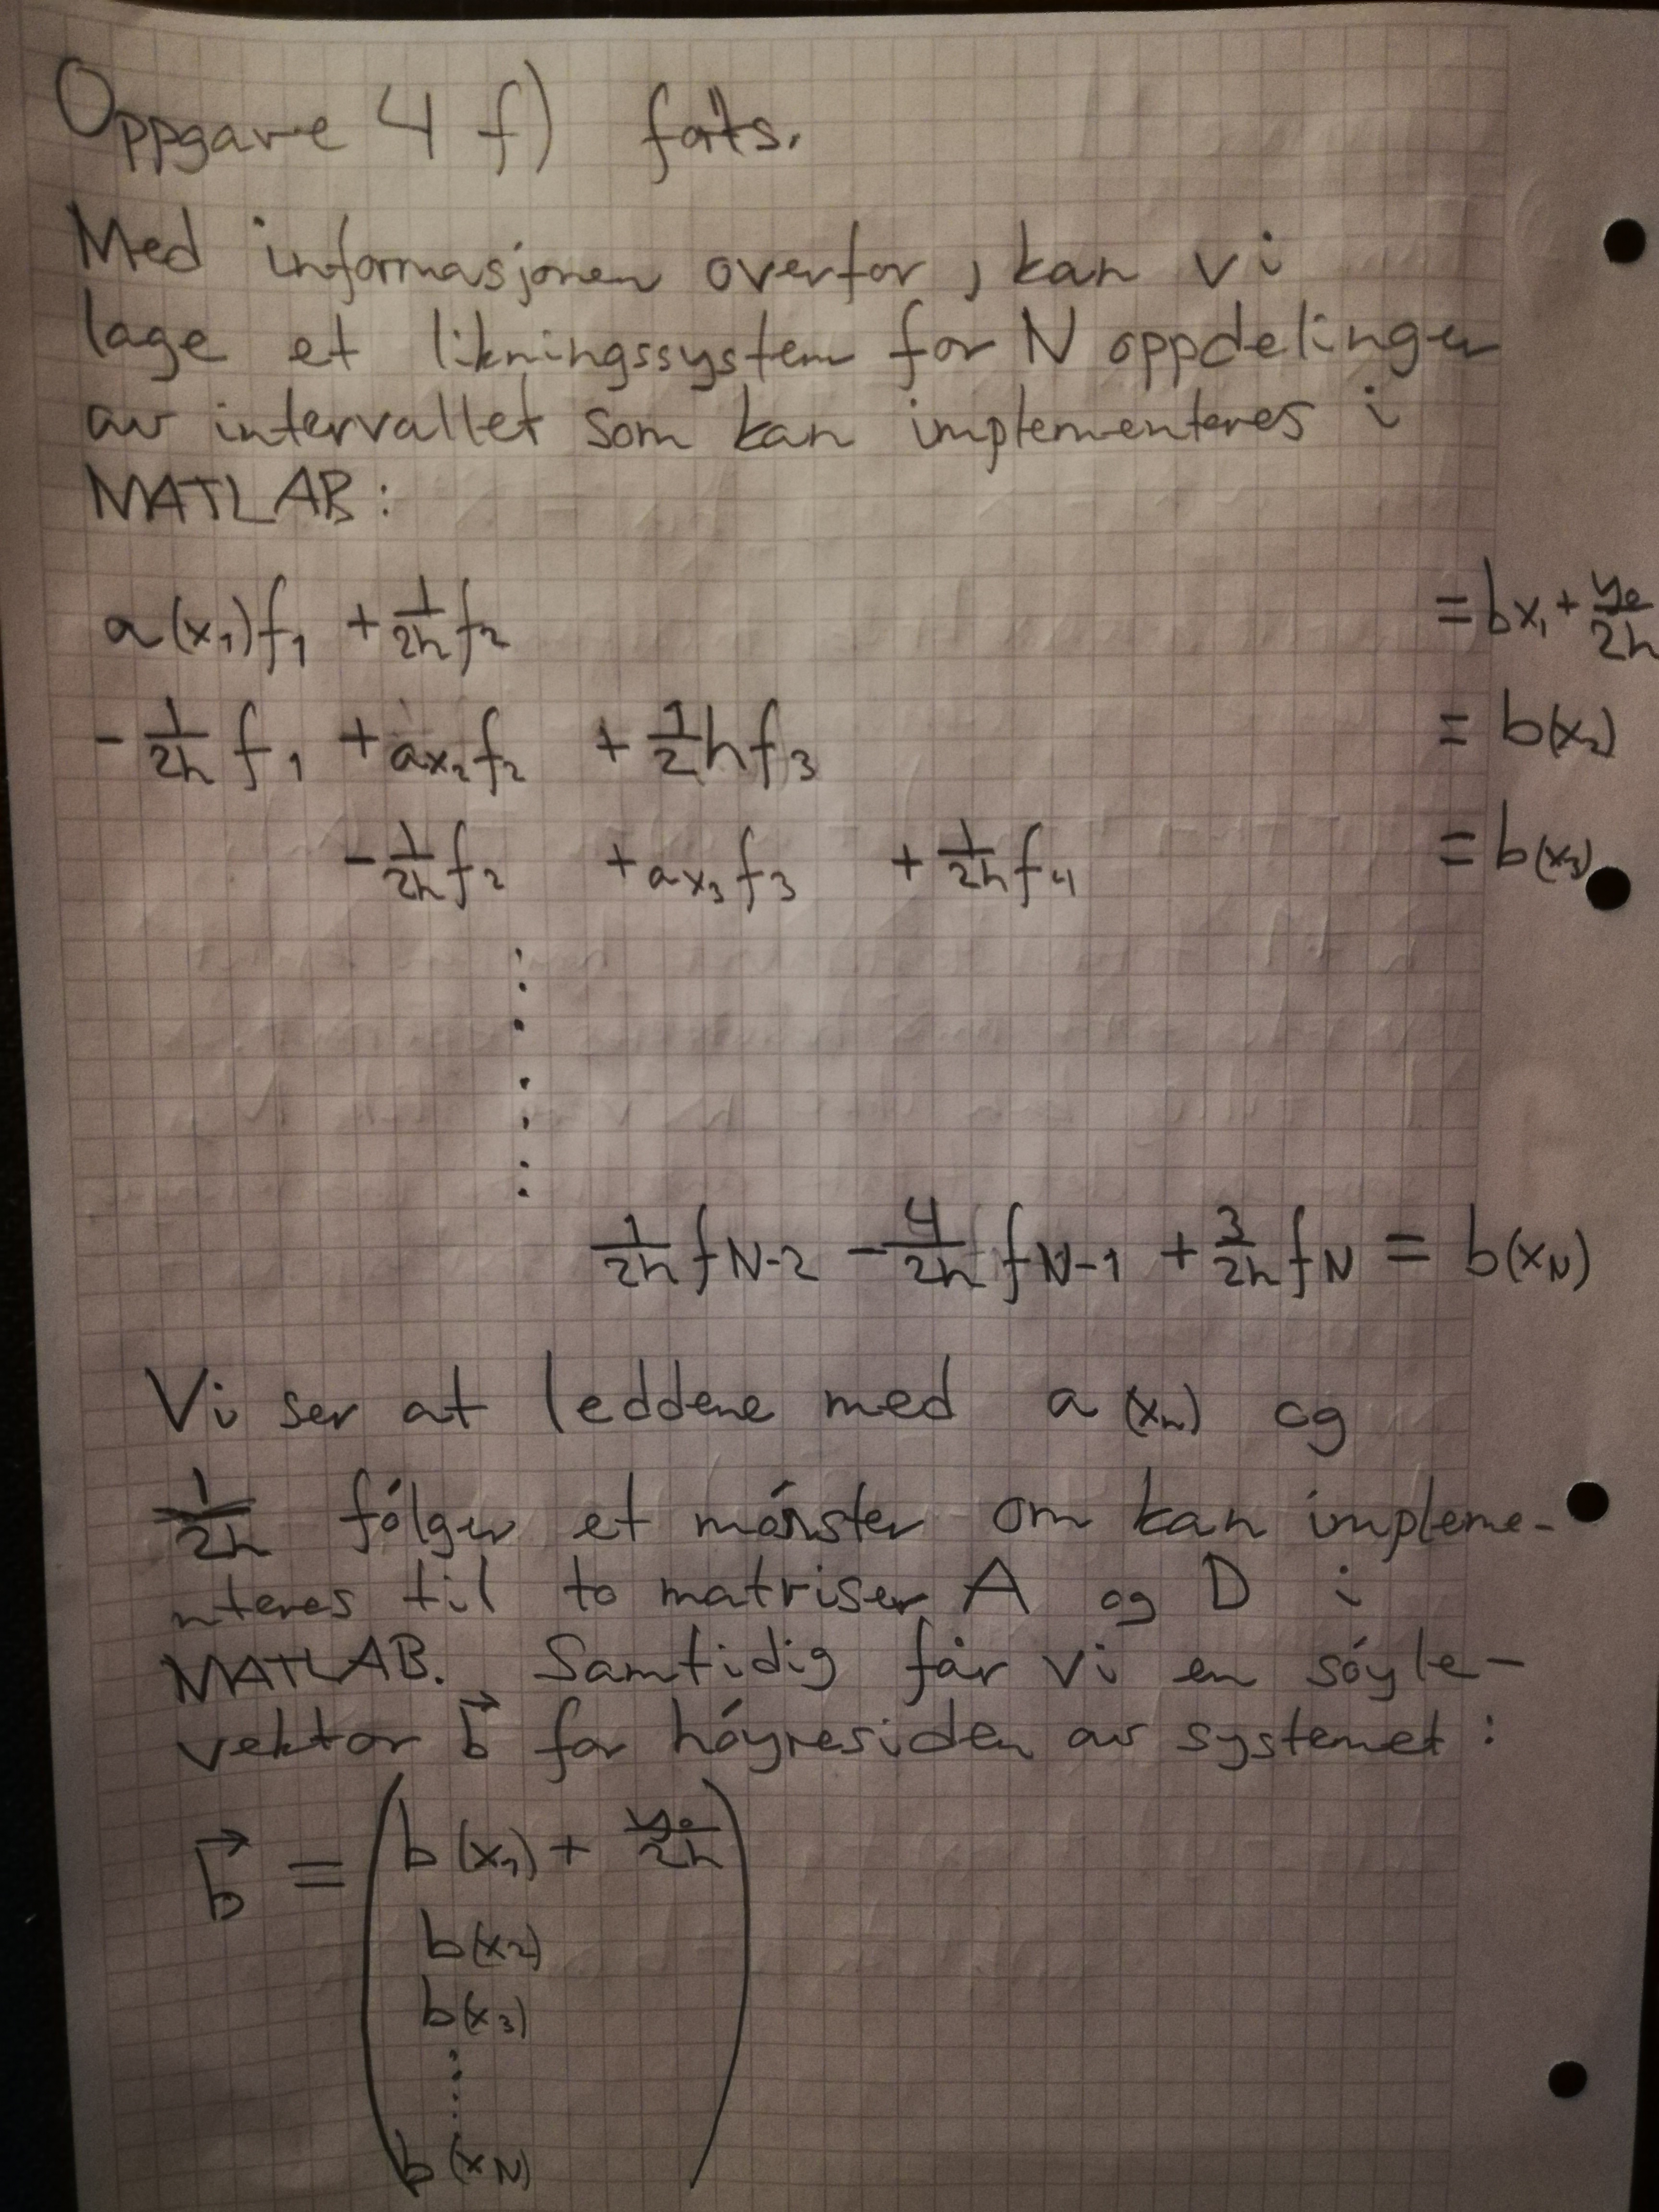 Oppgave 4 f) forts.
Med informasjonen overfor, kan vi
lage et likningssystem for N oppdelinger
av intervallet som kan implementeres i
MATLAB:
a(x₁)f₁ + 1/2h f₂ = bx₁ + y₀/2h
- 1/2h f₁ + ax₂f₂ + 1/2 hf₃ = b(x₂)
- 1/2h f₂ + ax₃f₃ + 1/2h f₄ = b(x₃)
1/2h fN-2 - 4/2h fN-1 + 3/2h fN = b(xN)
Vi ser at leddene med a(xₙ) og
1/2h fólger et mónster om kan impleme-
nteres til to matriser A og D i
MATLAB. Samtidig får vi en sóyle-
vektor b⃗ for hóyresiden av systemet:
b⃗ = ( b(x₁) + y₀/2h
b(x₂)
b(x₃)
⋮
b(xN) )